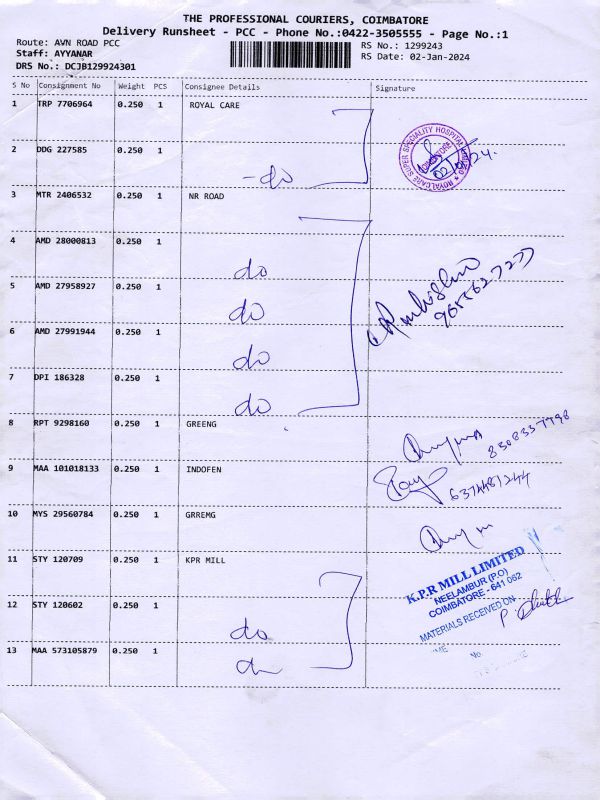 THE PROFESSIONAL COURIERS, COIMBATORE
Delivery Runsheet - PCC - Phone No.:0422-3505555 - Page No.:1
Route: AVN ROAD PCC
Staff: AYYANAR
DRS No.: DCJB129924301
RS No.: 1299243
RS Date: 02-Jan-2024
S No Consignment No Weight PCS Consignee Details Signature
1 TRP 7706964 0.250 1 ROYAL CARE
2 DDG 227585 0.250 1 -do
ROYALCARE SUPER SPECIALITY HOSPITAL COIMBATORE
3 MTR 2406532 0.250 1 NR ROAD
4 AMD 28000813 0.250 1 do
5 AMD 27958927 0.250 1 do
6 AMD 27991944 0.250 1 do
7 DPI 186328 0.250 1 do
8 RPT 9298160 0.250 1 GREENG 8508337798
9 MAA 101018133 0.250 1 INDOFEN 6374481244
10 MYS 29560784 0.250 1 GRREMG
11 STY 120709 0.250 1 KPR MILL
K.P.R MILL LIMITED
NEELAMBUR (P.O)
COIMBATORE - 641 062
MATERIALS RECEIVED ON
12 STY 120602 0.250 1 do
13 MAA 573105879 0.250 1
No.